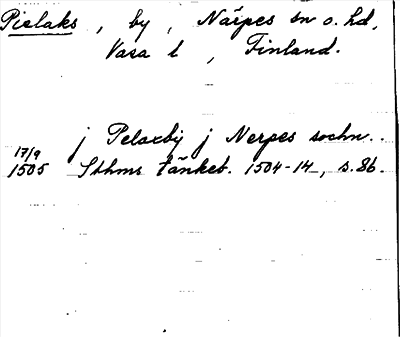 Pielaks, by, Närpes sn o. hd,
Vasa l, Finland.
j Pelaxby j Nerpes sochn..
17/9
1505 Sthms tänkeb. 1504-14, s. 86.